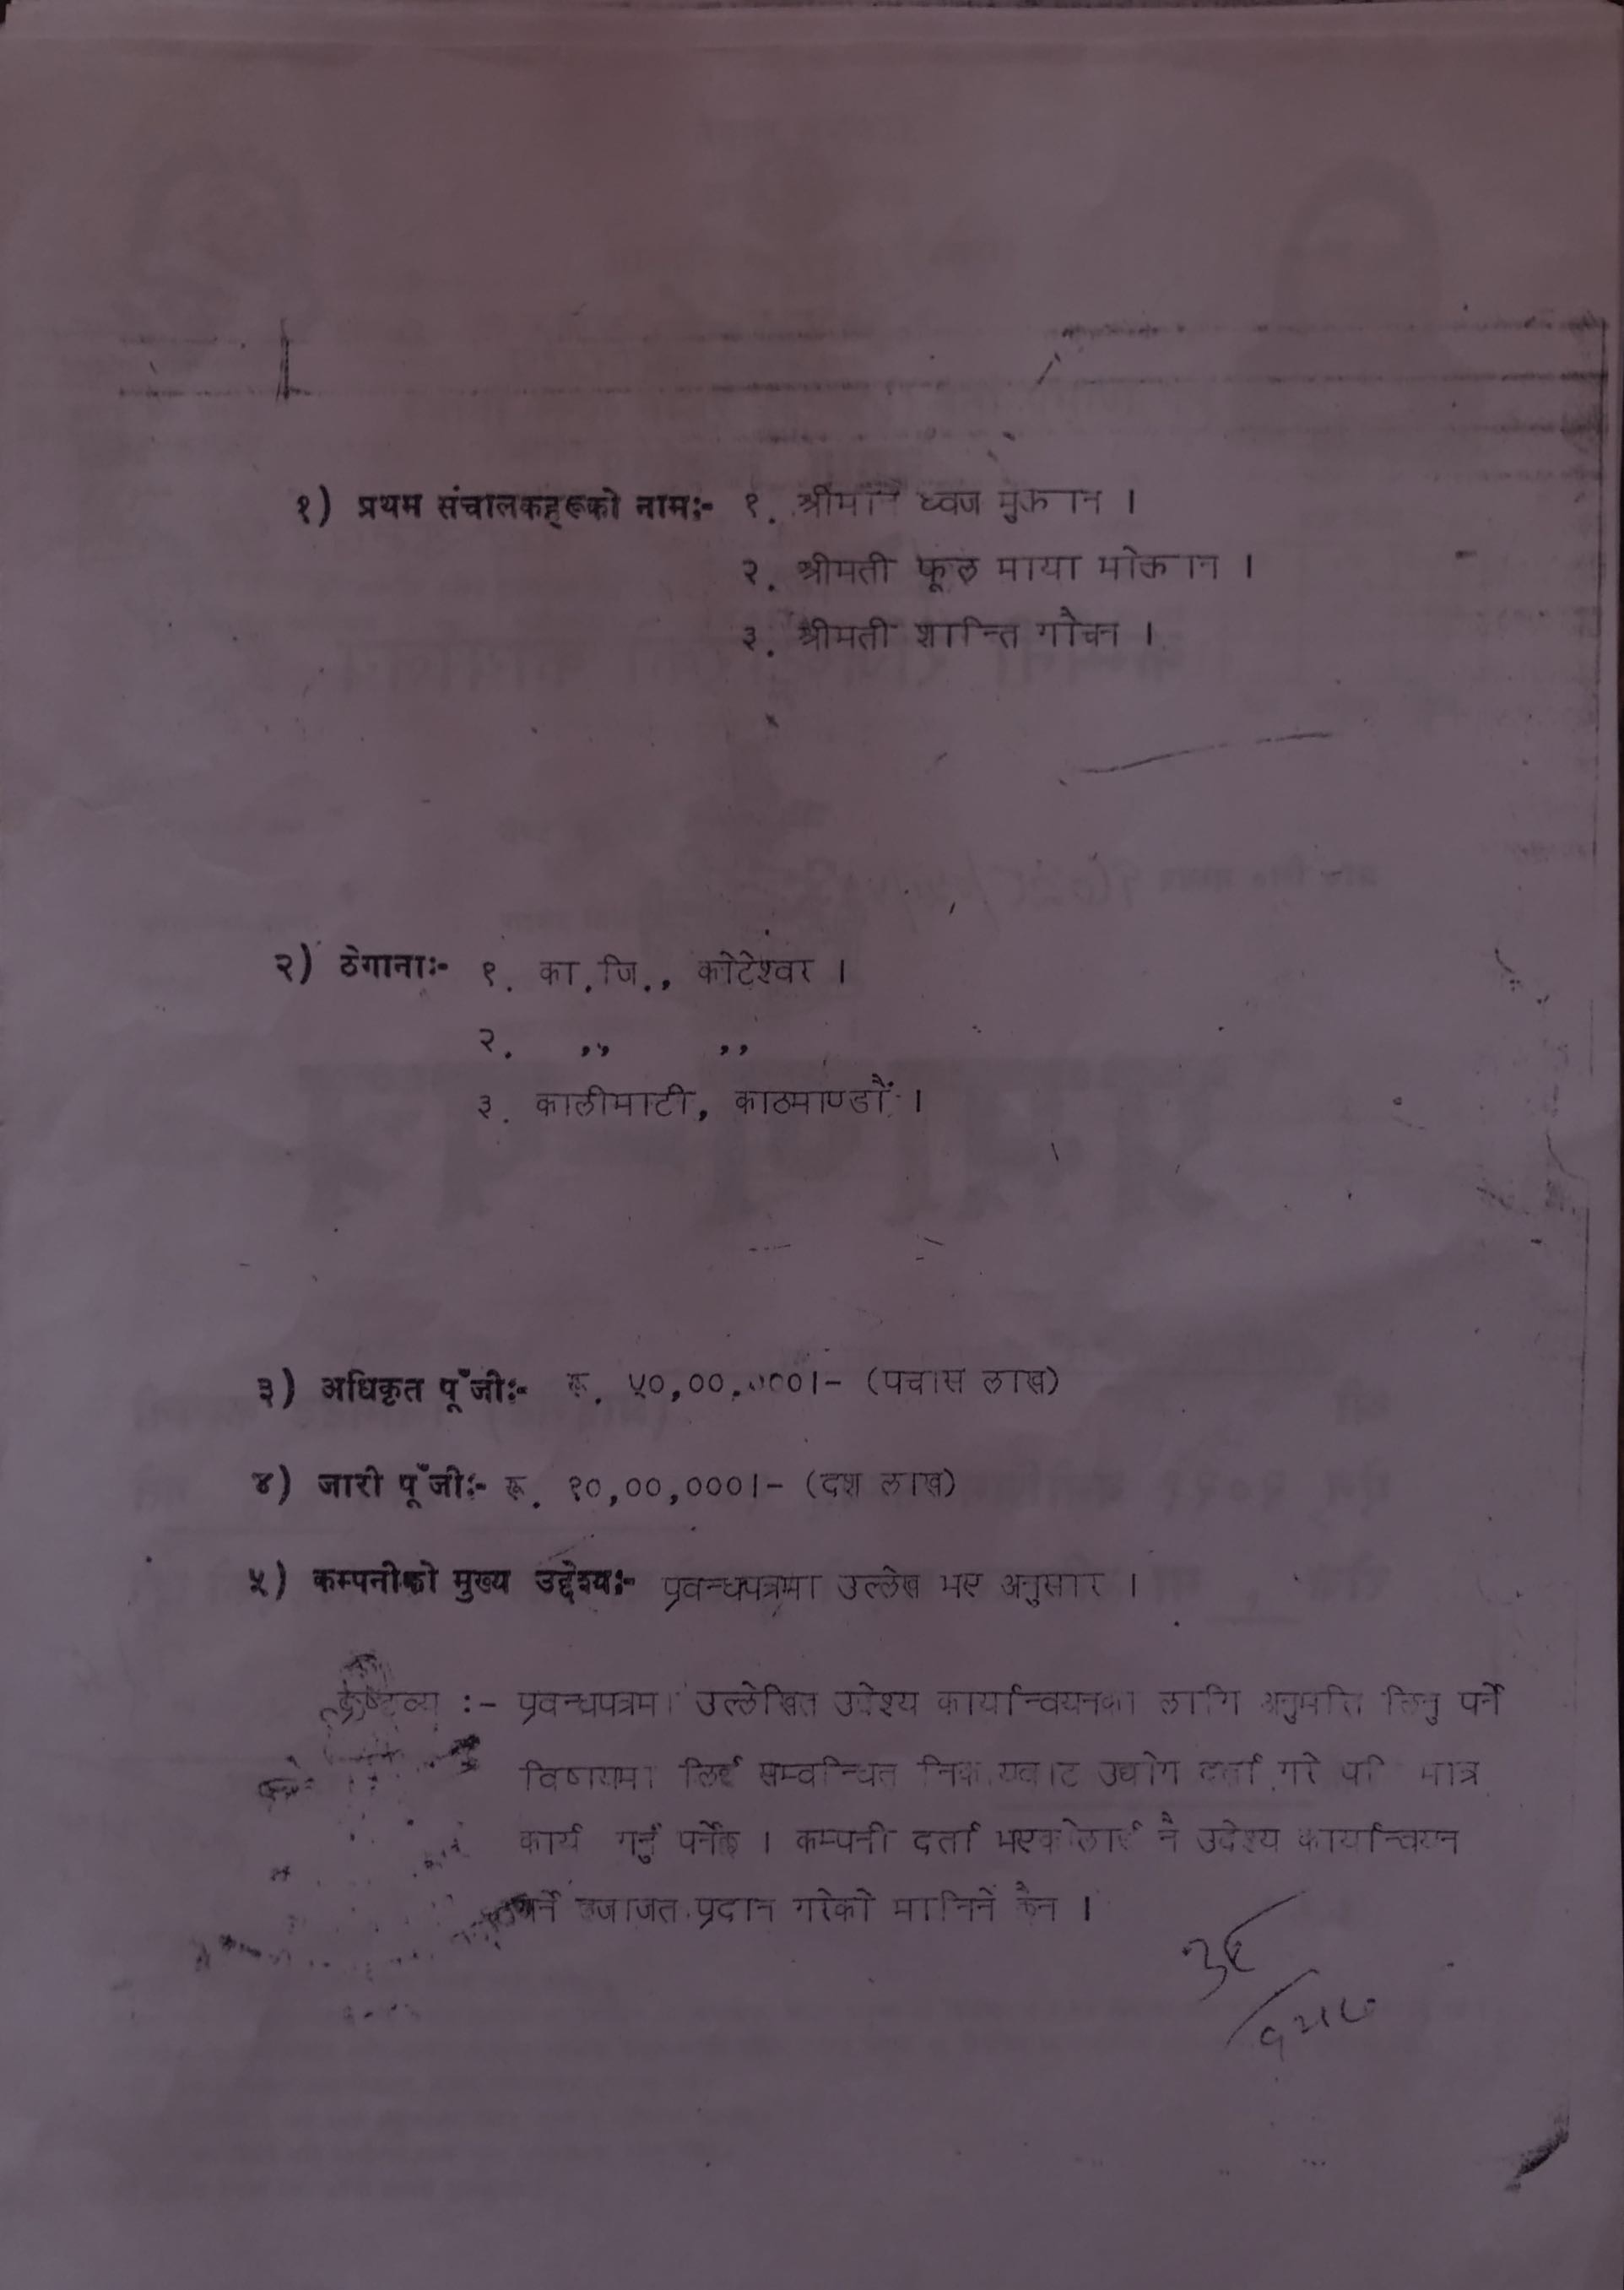 १) प्रथम संचालकहरूको नामः- १. श्रीमान ध्वज मुक्तान ।
२. श्रीमती फूल माया मोक्तान ।
३. श्रीमती शान्ति गोचन ।
२) ठेगानाः- १. का.जि., कोटेश्वर ।
२. ,, ,,
३. कालीमाटी, काठमाण्डौं ।
३) अधिकृत पूँजीः- रू. ५०,००,०००।- (पचास लाख)
४) जारी पूँजीः- रू. १०,००,०००।- (दश लाख)
५) कम्पनीको मुख्य उद्देश्यः- प्रवन्धपत्रमा उल्लेख भए अनुसार ।
द्रष्टव्य :- प्रवन्धपत्रमा उल्लेखित उदेश्य कार्यान्वयनका लागि अनुमति लिनु पर्ने
विषयमा लिई सम्वन्धित निकायवाट उद्योग दर्ता गरे पछि मात्र
कार्य गर्नु पर्नेछ । कम्पनी दर्ता भएकोलाई नै उदेश्य कार्यान्वयन
गर्ने इजाजत प्रदान गरेको मानिने छैन ।